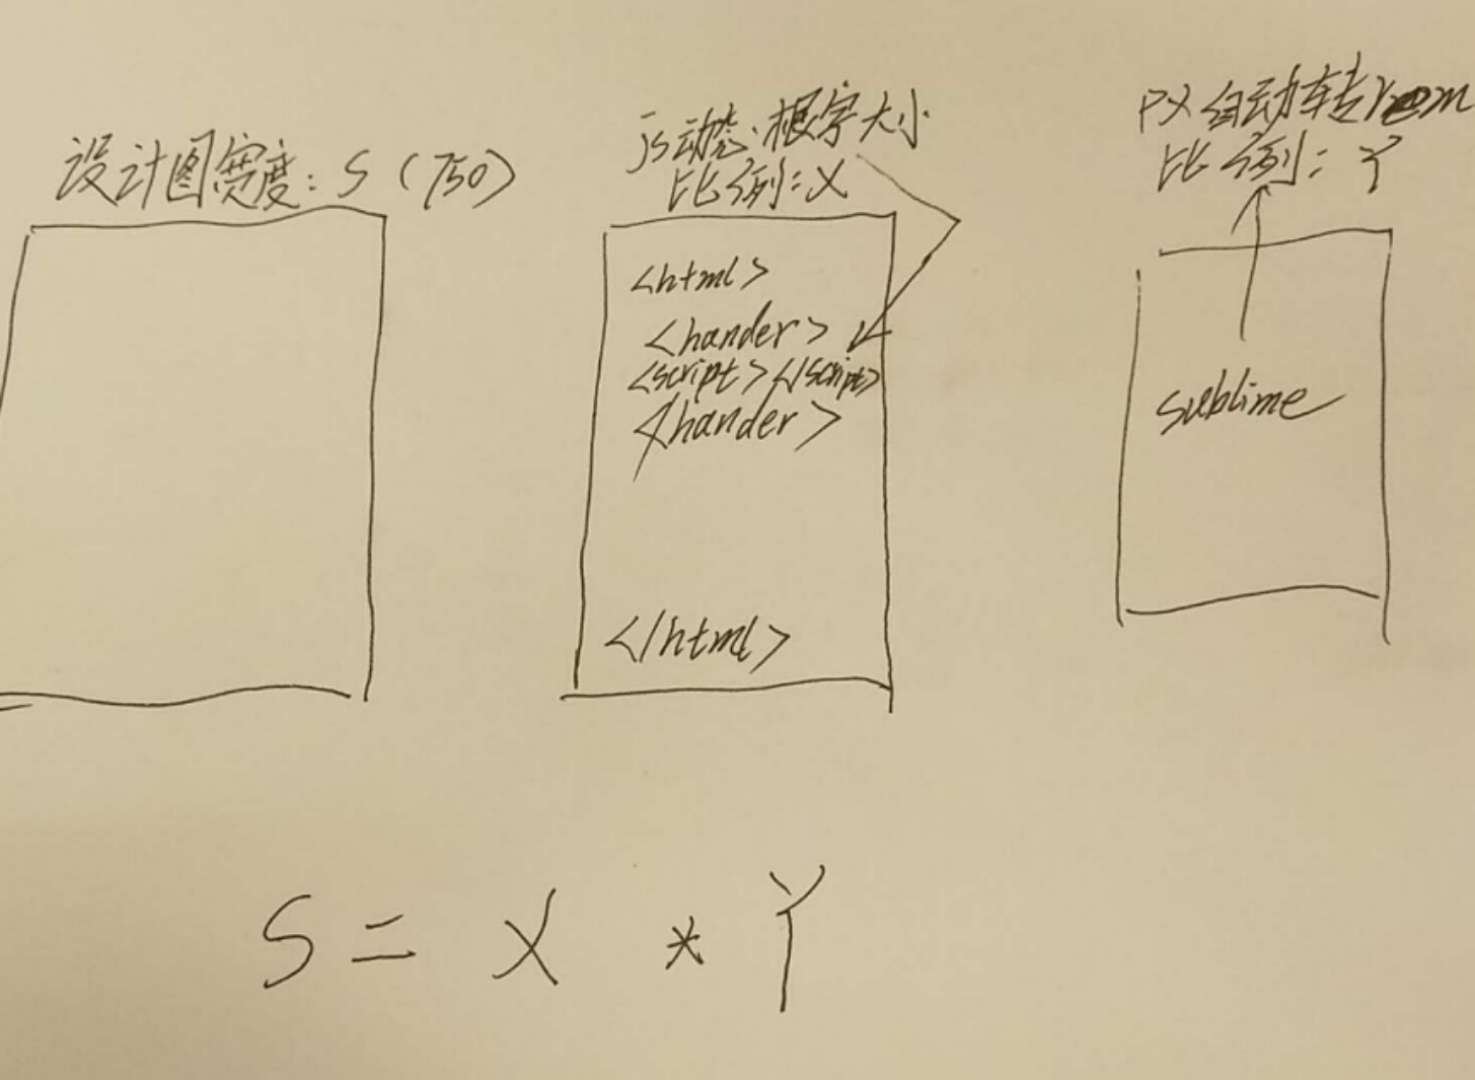 设计图宽度：S（750）
js动态根字大小
比例：X
<html>
<hander>
<script></script>
</hander>
</html>
PX自动转rem
比例：Y
sublime
S = X * Y